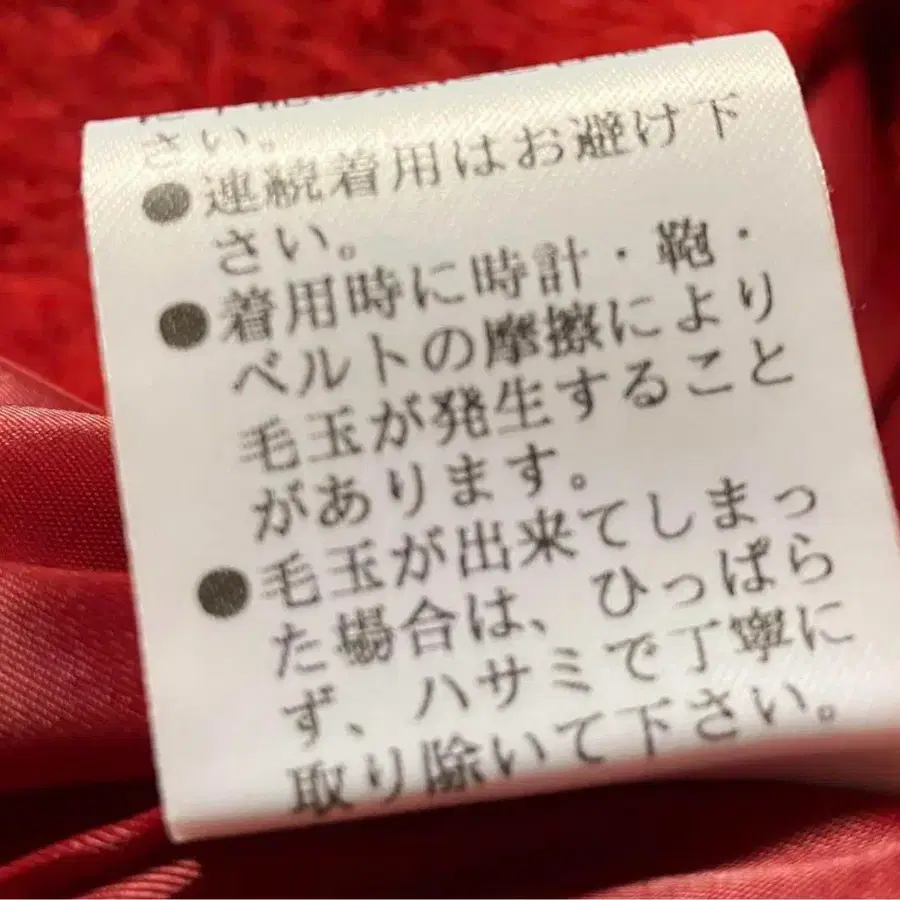 さい。
●連続着用はお避け下
さい。
●着用時に時計・鞄・
ベルトの摩擦により
毛玉が発生すること
があります。
●毛玉が出来てしまっ
た場合は、ひっぱら
ず、ハサミで丁寧に
取り除いて下さい。